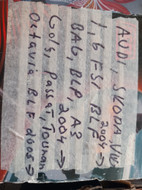 AUDI, SKODA VW
1,6 FSI BLF
2004->
BAG, BLP, A3
2004->
Golf, Passat, Touran
Octavia BLF 2005->